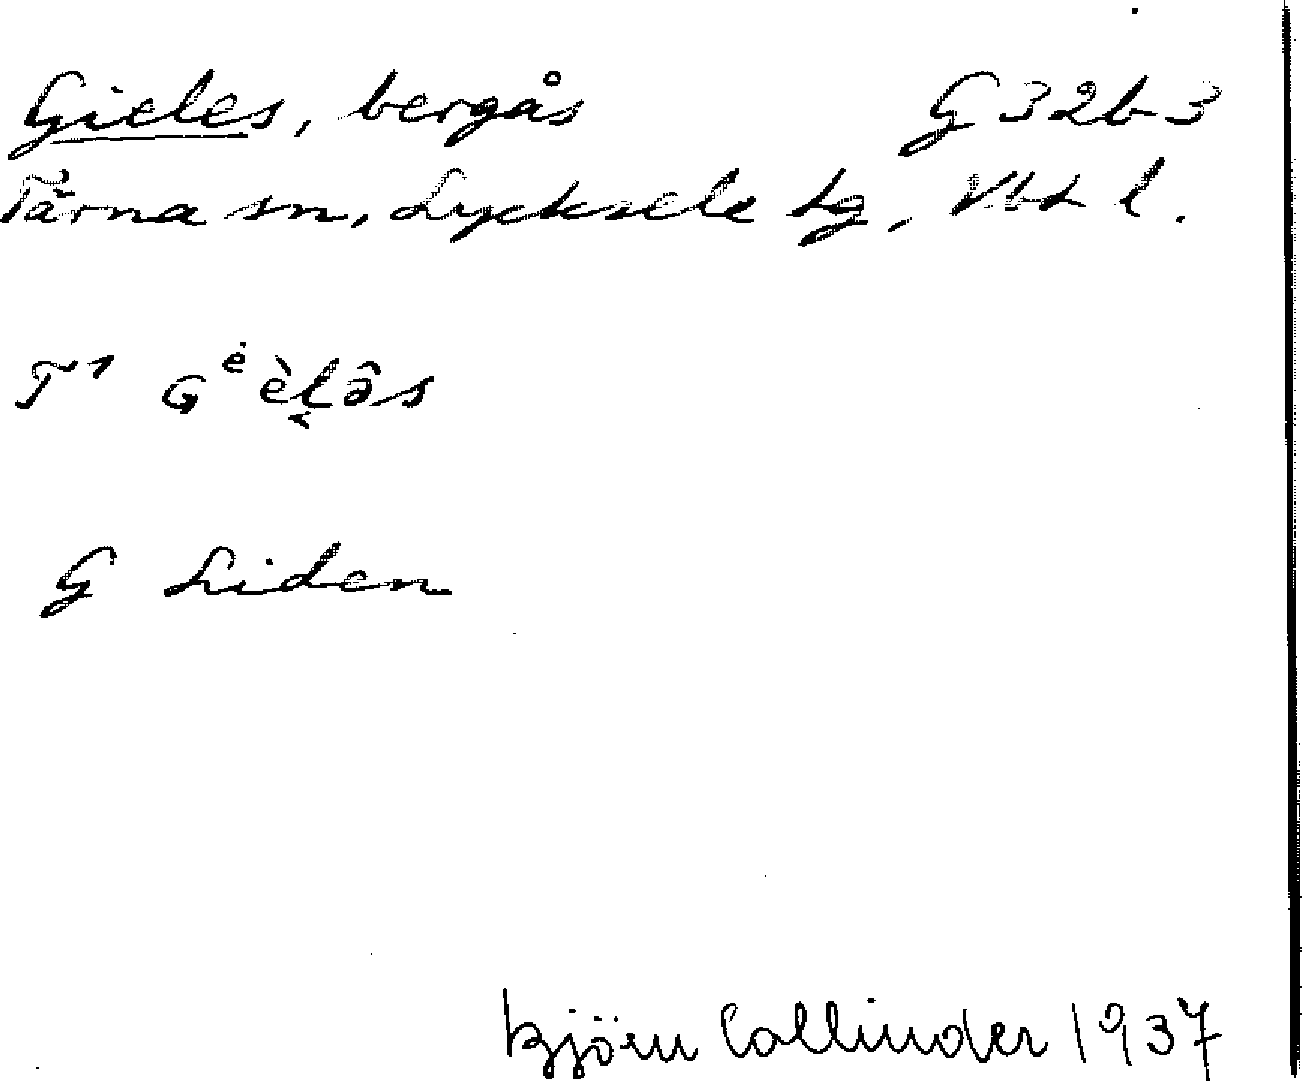 Gieles, bergås G 32b3
Tärna sn, Lycksele lg, Vbt l.
T1 Gėèl̬ə̂s
G Liden
Björn Collinder 1937